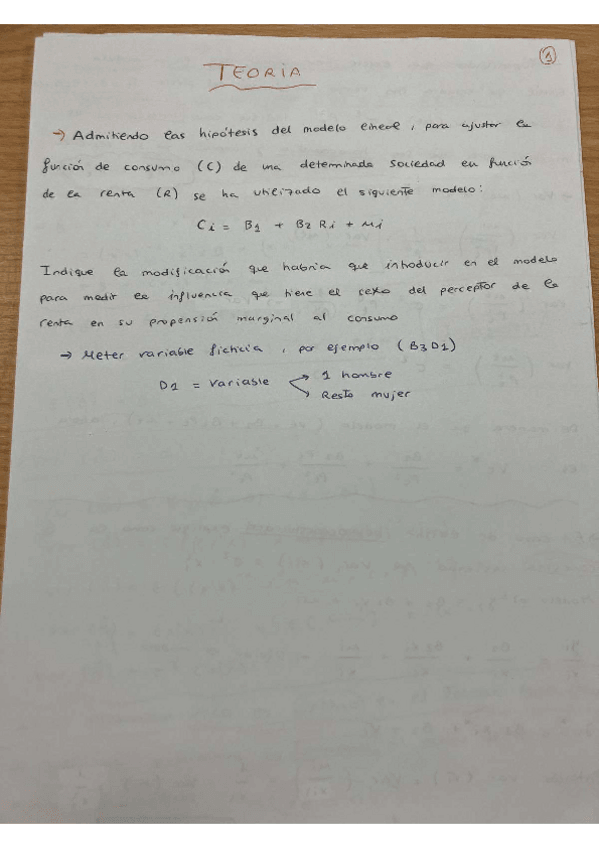 1
TEORIA
→ Admitiendo las hipótesis del modelo lineal, para ajustar la
función de consumo (C) de una determinada sociedad en función
de la renta (R) se ha utilizado el siguiente modelo:
Ci = B1 + B2 Ri + Mi
Indique la modificación que habria que introducir en el modelo
para medir la influencia que tiene el sexo del perceptor de la
renta en su propensión marginal al consumo
→ Meter variable ficticia, por ejemplo (B3D1)
D1 = variable 1 hombre
Resto mujer